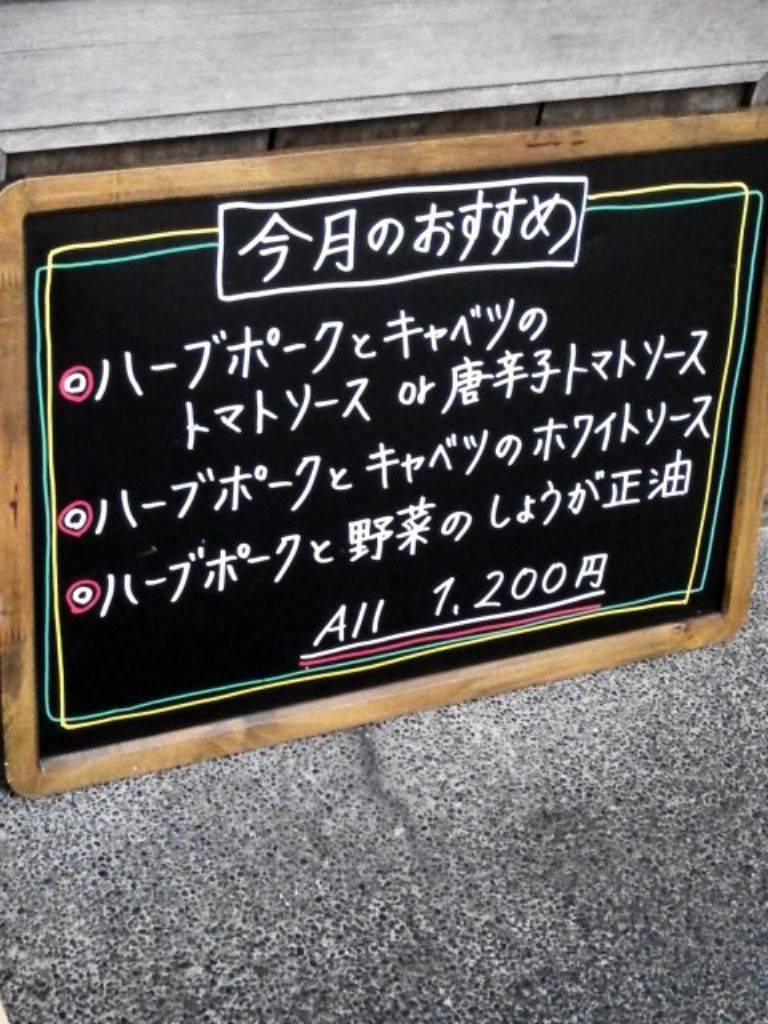 今月のおすすめ
◎ハーブポークとキャベツの
トマトソース or 唐辛子トマトソース
◎ハーブポークとキャベツのホワイトソース
◎ハーブポークと野菜のしょうが正油
All 1,200円